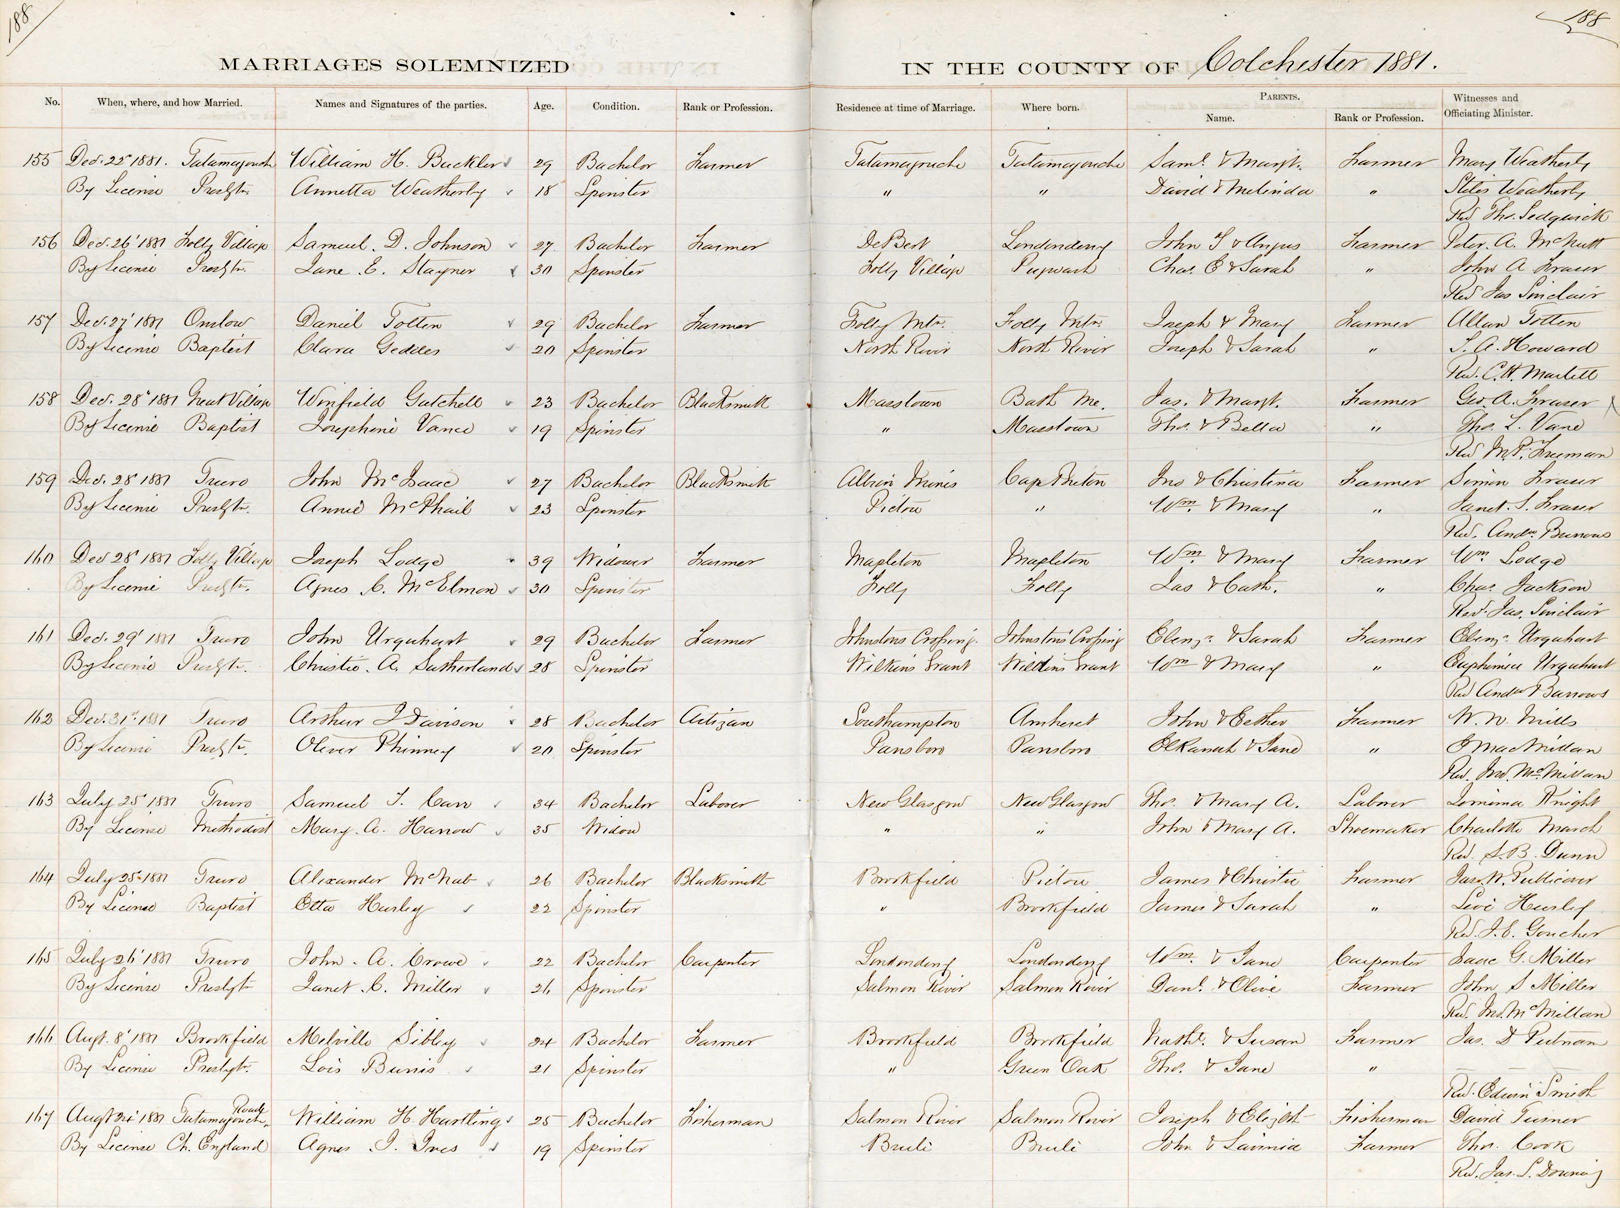 188
188
MARRIAGES SOLEMNIZED IN THE COUNTY OF Colchester 1881.
No. When, where, and how Married. Names and Signatures of the parties. Age. Condition. Rank or Profession. Residence at time of Marriage. Where born. PARENTS. Name. Rank or Profession. Witnesses and Officiating Minister.
155 Dec. 25' 1881. Tatamagouche William H. Buckler 29 Bachelor Farmer Tatamagouche Tatamagouche Saml. & Margt. Farmer Mary Weatherby
By License Presbytr. Annetta Weatherby 18 Spinster " " David & Melinda " Stiles Weatherby
Rev Thos. Sedgwick
156 Dec. 26' 1881 Folly Village Samuel. D. Johnson 27 Bachelor Farmer DeBert Londonderry John & Farmer Peter. A. McNutt
By License Presbytr. Jane. E. Stayner 30 Spinster Folly Village Pugwash Chas. E & Sarah " John A Fraser
Rev Jas Sinclair
157 Dec. 27' 1881 Onslow Daniel Totten 29 Bachelor Farmer Folly Mtn. Folly Mtn. Joseph & Mary Farmer Allan Totten
By License Baptist Clara Geddes 20 Spinster North River North River Joseph & Sarah " Howard
Rev. C.H. Martell
158 Dec. 28' 1881 Great Village Winfield Gatchell 23 Bachelor Blacksmith Masstown Bath Me. Jas. & Margt. Farmer Geo. A. Fraser
By License Baptist Josephine Vance 19 Spinster " Masstown Thos. & Bella " Thos. L. Vance
Rev M.P. Freeman
159 Dec. 28' 1881 Truro John McIsaac 27 Bachelor Blacksmith Albion Mines Cape Breton Jno & Christina Farmer Simon Fraser
By License Presbytr. Annie McPhail 23 Spinster Pictou " Wm. & Mary " Janet. S. Fraser
Rev. Andw. Burrows
160 Dec 28' 1881 Folly Village Joseph Lodge 39 Widower Farmer Mapleton Mapleton Wm & Mary Farmer Wm Lodge
By License Presbytr. Agnes C. McElmon 30 Spinster Folly Folly Jas & Cath. " Chas. Jackson
Rev. Jas. Sinclair
161 Dec. 29' 1881 Truro John Urquhart 29 Bachelor Farmer Johnstons Crossing. Johnstons Crossing Ebenzr. & Sarah Farmer Ebenzr. Urquhart
By License Presbytr. Christie. A. Sutherland 28 Spinster Wilkins Grant Wilkins Grant Wm & Mary " Euphemia Urquhart
Rev Andw Burrows
162 Dec. 31st 1881 Truro Arthur J Davison 28 Bachelor Artizan Southampton Amherst John & Esther Farmer W. W. Mills
By License Presbytr. Oliver Phinney 20 Spinster Parrsboro Parrsboro Elkanah & Jane " E MacMillan
Rev. Jno. McMillan
163 July 25' 1881 Truro Samuel T. Carr 34 Bachelor Laborer New Glasgow New Glasgow Thos. & Mary A. Laborer Jemima Knight
By License Methodist Mary. A. Harrow 35 Widow " " John & Mary A. Shoemaker Charlotte March
Rev. S. B. Dunn
164 July 25' 1881 Truro Alexander McNab 26 Bachelor Blacksmith Brookfield Pictou James & Christie Farmer Jas. W. Publicover
By License Baptist Etta Hurley 22 Spinster " Brookfield James & Sarah " Levi Hurley
Rev. J. E. Goucher
165 July 26' 1881 Truro John. A. Crowe 22 Bachelor Carpenter Londonderry Londonderry Wm. & Jane Carpenter Isaac G. Miller
By License Presbyt Janet C. Miller 26 Spinster Salmon River Salmon River Danl. & Olive Farmer John S Miller
Rev. Jno. McMillan
166 Augt. 8' 1881 Brookfield Melville Sibley 24 Bachelor Farmer Brookfield Brookfield Nathl. & Susan Farmer Jas. D Putnam
By License Presbyt. Lois Burris 21 Spinster " Green Oak Thos. & Jane "
Rev. Edwin Smith
167 Augt 24' 1881 Tatamagouche Road William H. Hartling 25 Bachelor Fisherman Salmon River Salmon River Joseph & Elizbth Fisherman David Turner
By License Ch. England Agnes J. Ives 19 Spinster Brule Brule John & Lavinia Farmer Thos. Cook
Rev. Jas. L. Downing